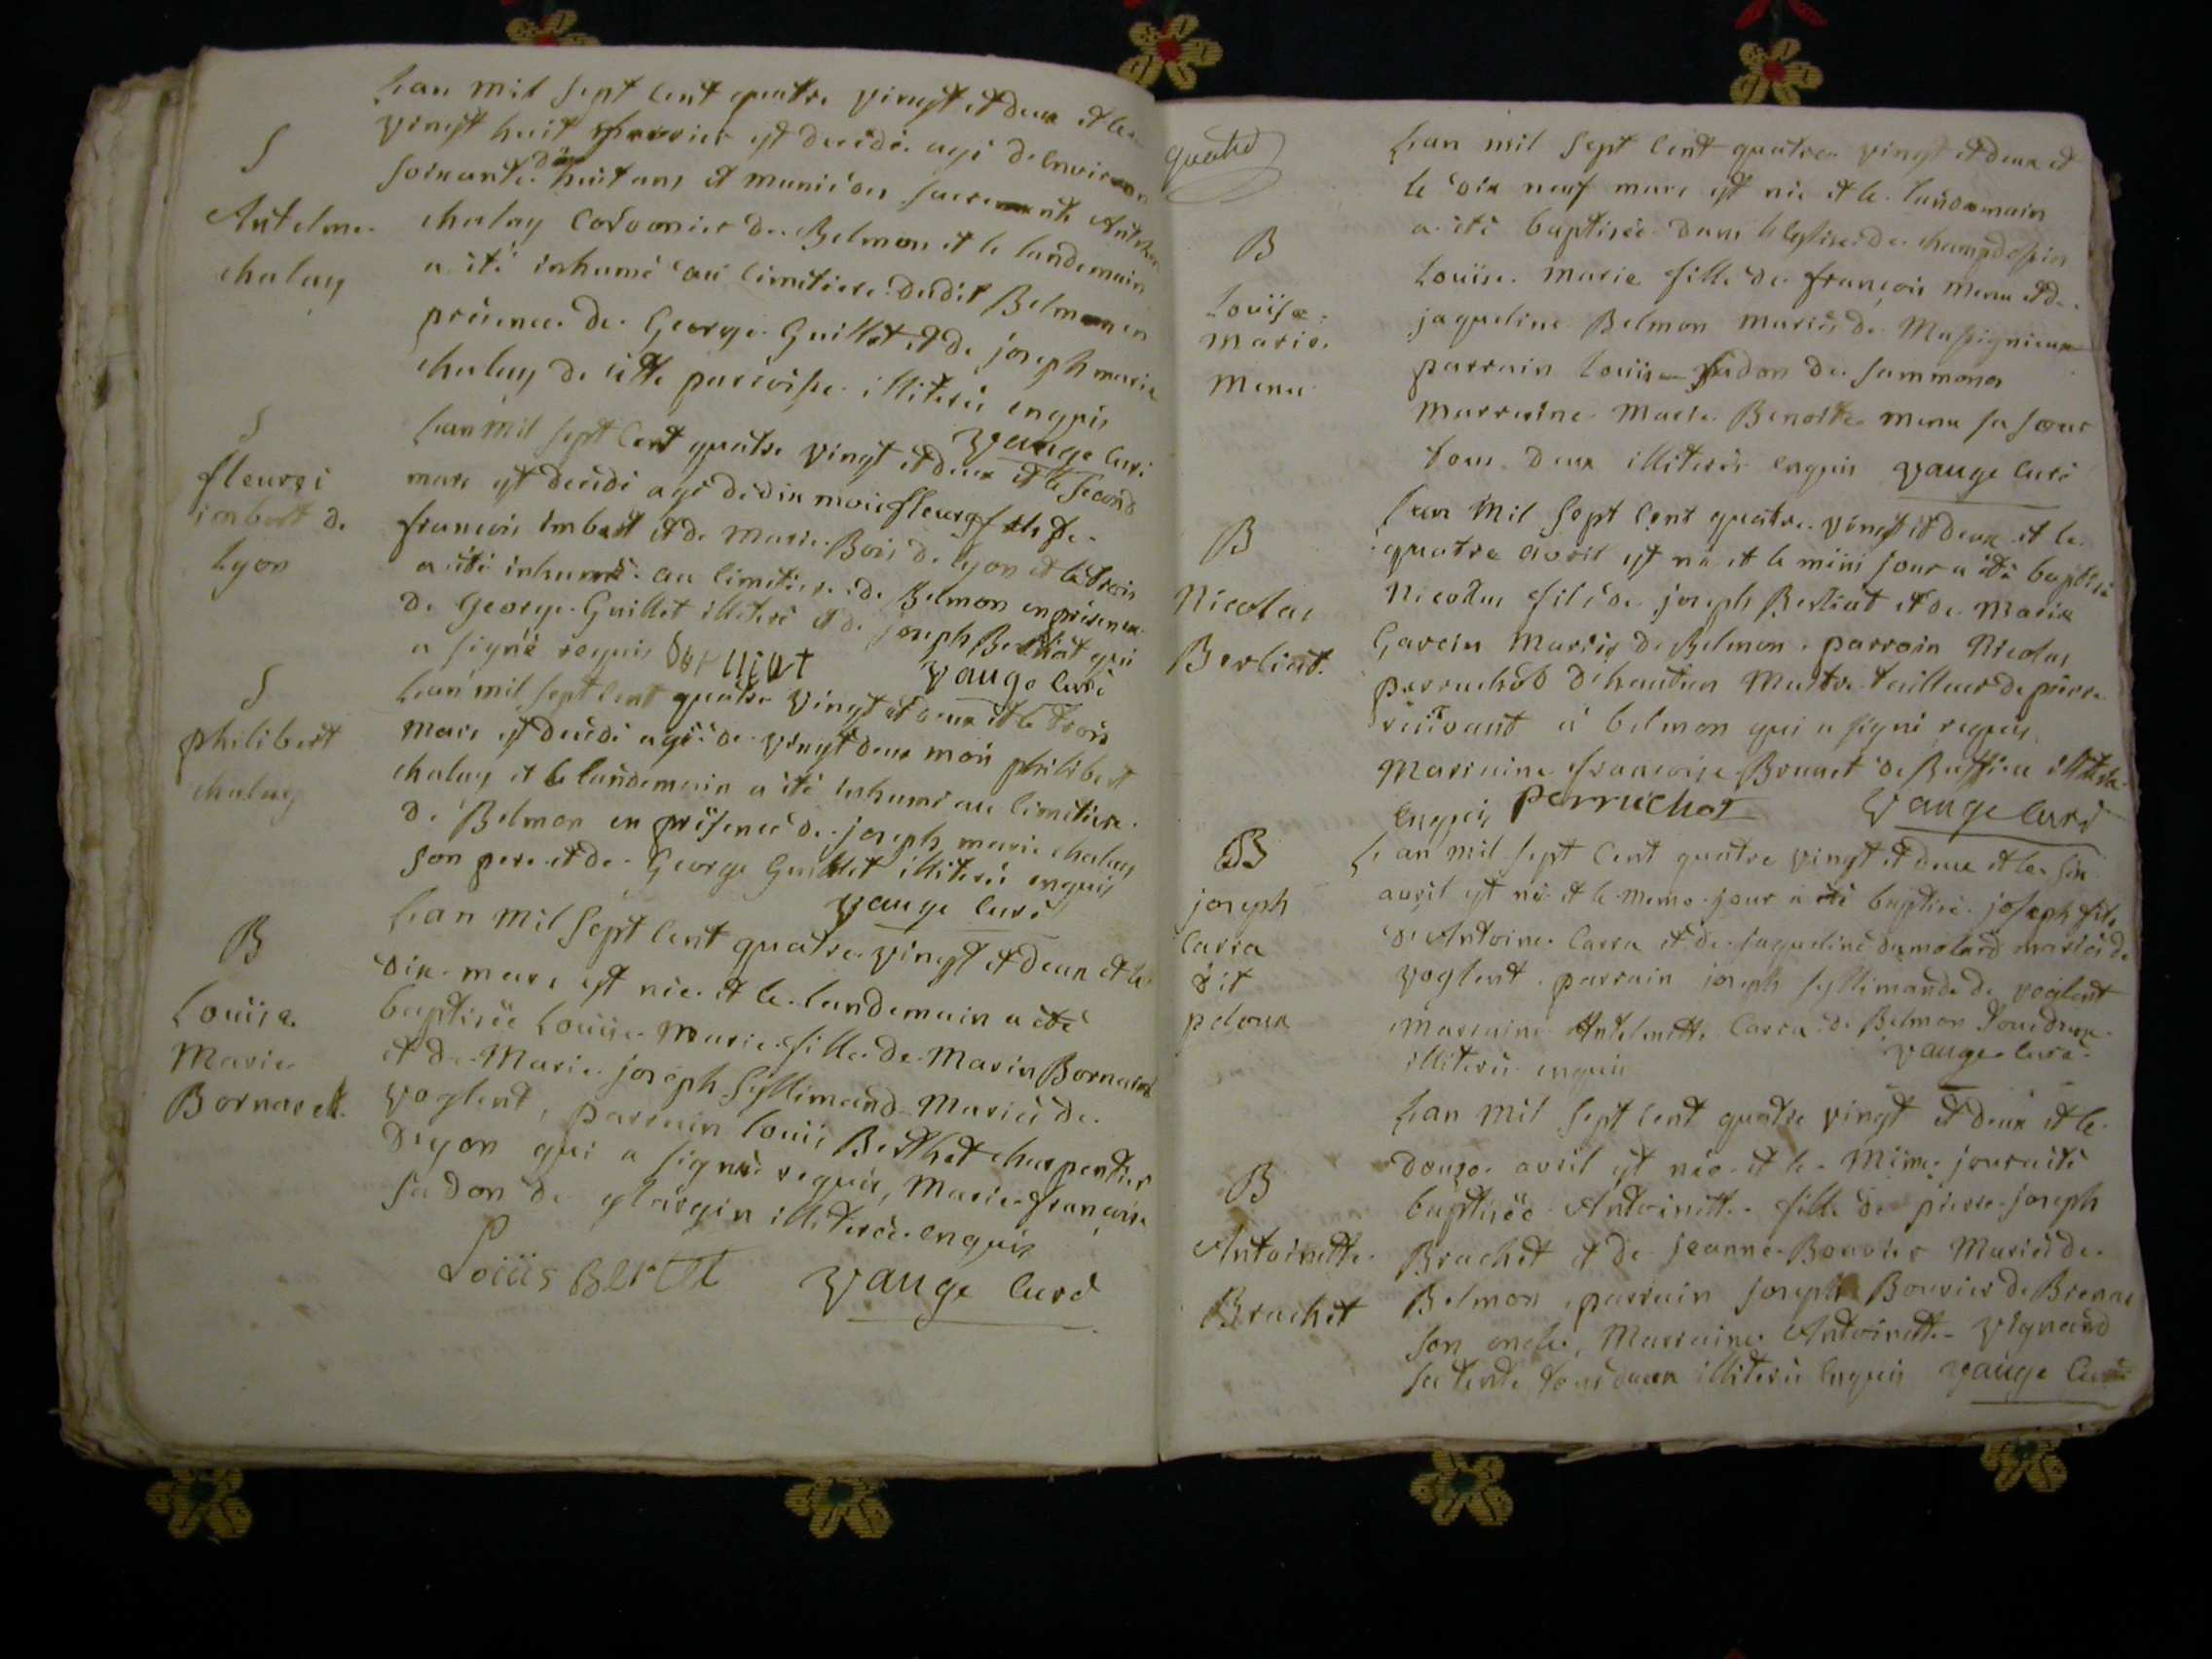 Lan mil sept cent quatre vingt et deux et le
vingt huit fevrier est decede agé d'environ
S
soixante dix huit ans et muni des sacrements Antelme
Antelme
chalay
chalay cordonier de Belmon et le landemain
a été inhumé au cimetiere dudit Belmon en
présence de George Guillet et de joseph marie
chalay de cette parroisse illiterés enquis
vauge curé
S
fleuri
imbert de
Lyon
Lan mil sept cent quatre vingt et deux et le second
mars est decedé agé de dix mois fleury fils de
francois imbert et de marie Bois de Lyon et le trois
a été inhumé au cimetiere de Belmon en présence
de George Guillet illiteré et de joseph Berliat qui
a signé requis Berliat vauge curé
S
philibert
chalay
Lan mil sept cent quatre vingt et deux et le trois
mars est decedé agé de vingt deux mois philibert
chalay et le landemain a été inhumé au cimetiere
de Belmon en présence de joseph marie chalay
son pere et de George Guillet illiterés enquis
vauge curé
B
Louise
Marie
Bornarel
Lan mil sept cent quatre vingt et deux et le
dix mars est née et le landemain a été
baptisée Louise Marie fille de Marin Bornarel
et de Marie joseph Syllimand Mariés de
voglent, parrain Louis Berthet charpentier
de yon qui a signé requis, Marie françoise
sadon de illiterée enquis
Loüis Bertet vauge curé
quatre
B
Louise
Marie
Menu
Lan mil sept cent quatre vingt et deux et
le dix neuf mars est née et le landemain
a été baptisée dans leglise de champdossin
Louise Marie fille de françois menu et de
jaqueline Belmon mariés de Massignieux
parrain Louis sadon de sammonor
marraine Marie Benoite menu sa sœur
tous deux illiterés enquis vauge curé
B
Nicolas
Berliat
Lan mil sept cent quatre vingt et deux et le
quatre avril est né et le même jour a été baptisé
Nicolas fils de joseph Berliat et de Marie
Garcin Mariés de Belmon, parrain Nicolas
perruchot d'hautun Maitre tailleur de pierre
residant à belmon qui a signé requis
Marraine francoise Brunet de Ruffieu illiterée
enquis perruchot vauge curé
B
joseph
Carra
dit
peloux
Lan mil sept cent quatre vingt et deux et le six
avril est né et le meme jour a été baptisé joseph fils
d'Antoine Carra et de jaqueline dumolard mariés de
voglent, parrain joseph Syllimand de voglent
marraine Antelmette Carra de Belmon tous deux
illiterés enquis vauge curé
B
Antoinette
Brachet
Lan mil sept cent quatre vingt et deux et le
douze avril est née et le même jour a été
baptisée Antoinette fille de pierre joseph
Brachet et de jeanne Bouvier Mariés de
Belmon, parrain joseph Bouvier de Brenas
son oncle, Marraine Antoinette vignand
sa tante tous deux illiterés enquis vauge curé